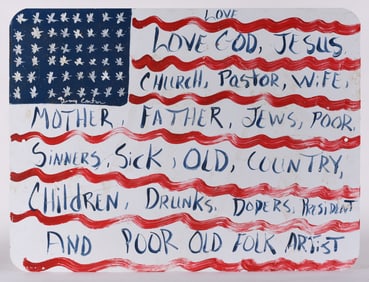 LOVE
LOVE GOD, JESUS,
CHURCH, PASTOR, WiFE,
MOTHER, FATHER, JEWS, POOR,
SINNERS, SiCK, OLD, COUNTRY,
CHiLDREN, DRUNKS, DOPERS, PRESIDENT
AND POOR OLD FOLK ARTiST